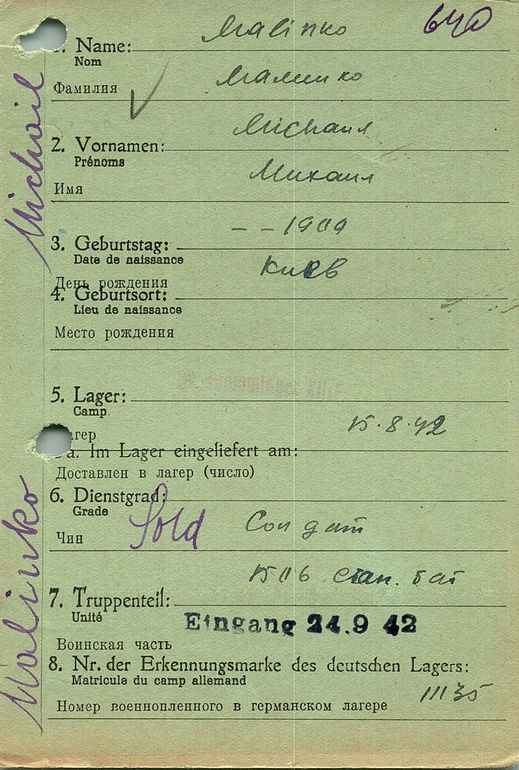 640
Malinko
1. Name:
Nom
Малинко
Фамилия
Michail
Michaил
2. Vornamen:
Prénoms
Михаил
Имя
- - 1909
3. Geburtstag:
Date de naissance
Киев
День рождения
4. Geburtsort:
Lieu de naissance
Место рождения
5. Lager:
Camp
Лагер
15.8.42
a. Im Lager eingeliefert am:
Доставлен в лагер (число)
6. Dienstgrad:
Grade
Sold Солдат
Чин
Malinko
7. Truppenteil:
Unité
Eingang 24.9 42
Воинская часть
8. Nr. der Erkennungsmarke des deutschen Lagers:
Matricule du camp allemand
11135
Номер военнопленного в германском лагере